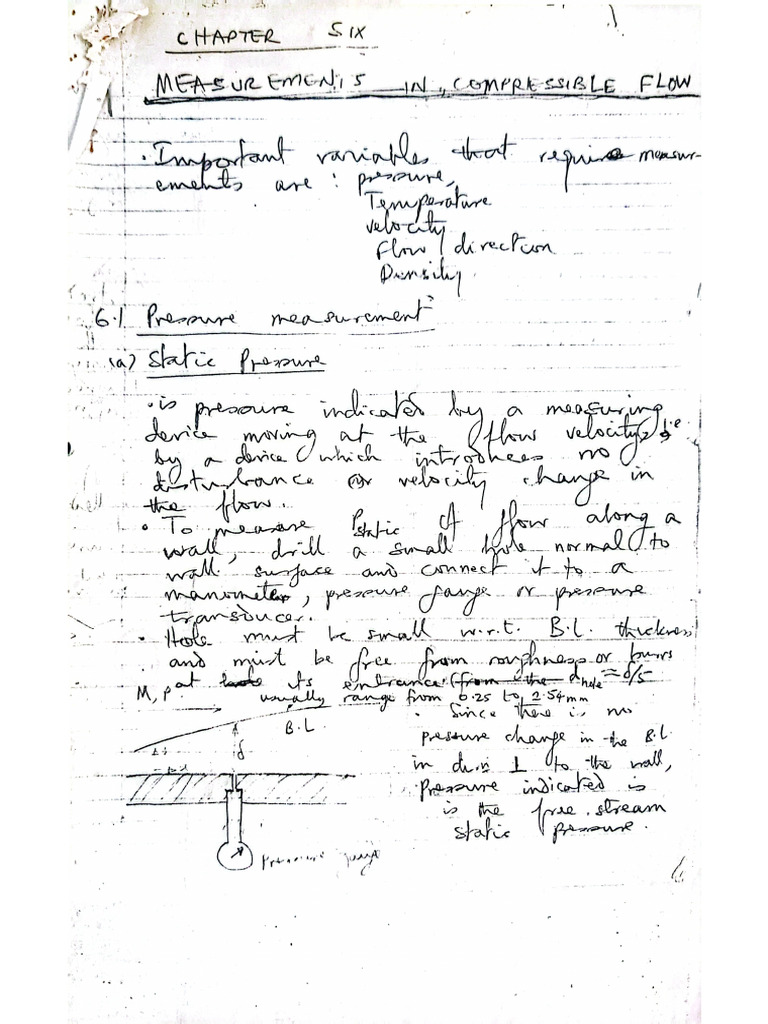 CHAPTER SIX
MEASUREMENTS IN COMPRESSIBLE FLOW
· Important variables that require measur-
ements are : pressure,
Temperature
velocity
Flow direction
Density
6.1 Pressure measurement
(a) Static Pressure
· is pressure indicated by a measuring
device moving at the flow velocity, i.e
by a device which introduces no
disturbance or velocity change in
the flow.
· To measure Pstatic of flow along a
wall, drill a small hole normal to
wall surface and connect it to a
manometer, pressure gauge or pressure
transducer.
· Hole must be small w.r.t. B.L. thickness
and must be free from roughness or burrs
at its entrance dhole ≈ δ/5
M, P
usually range from 0.25 to 2.54mm
B.L
δ
Pressure gauge
· Since there is no
pressure change in the B.L
in dir.n ⊥ to the wall,
pressure indicated is
is the free stream
static pressure.